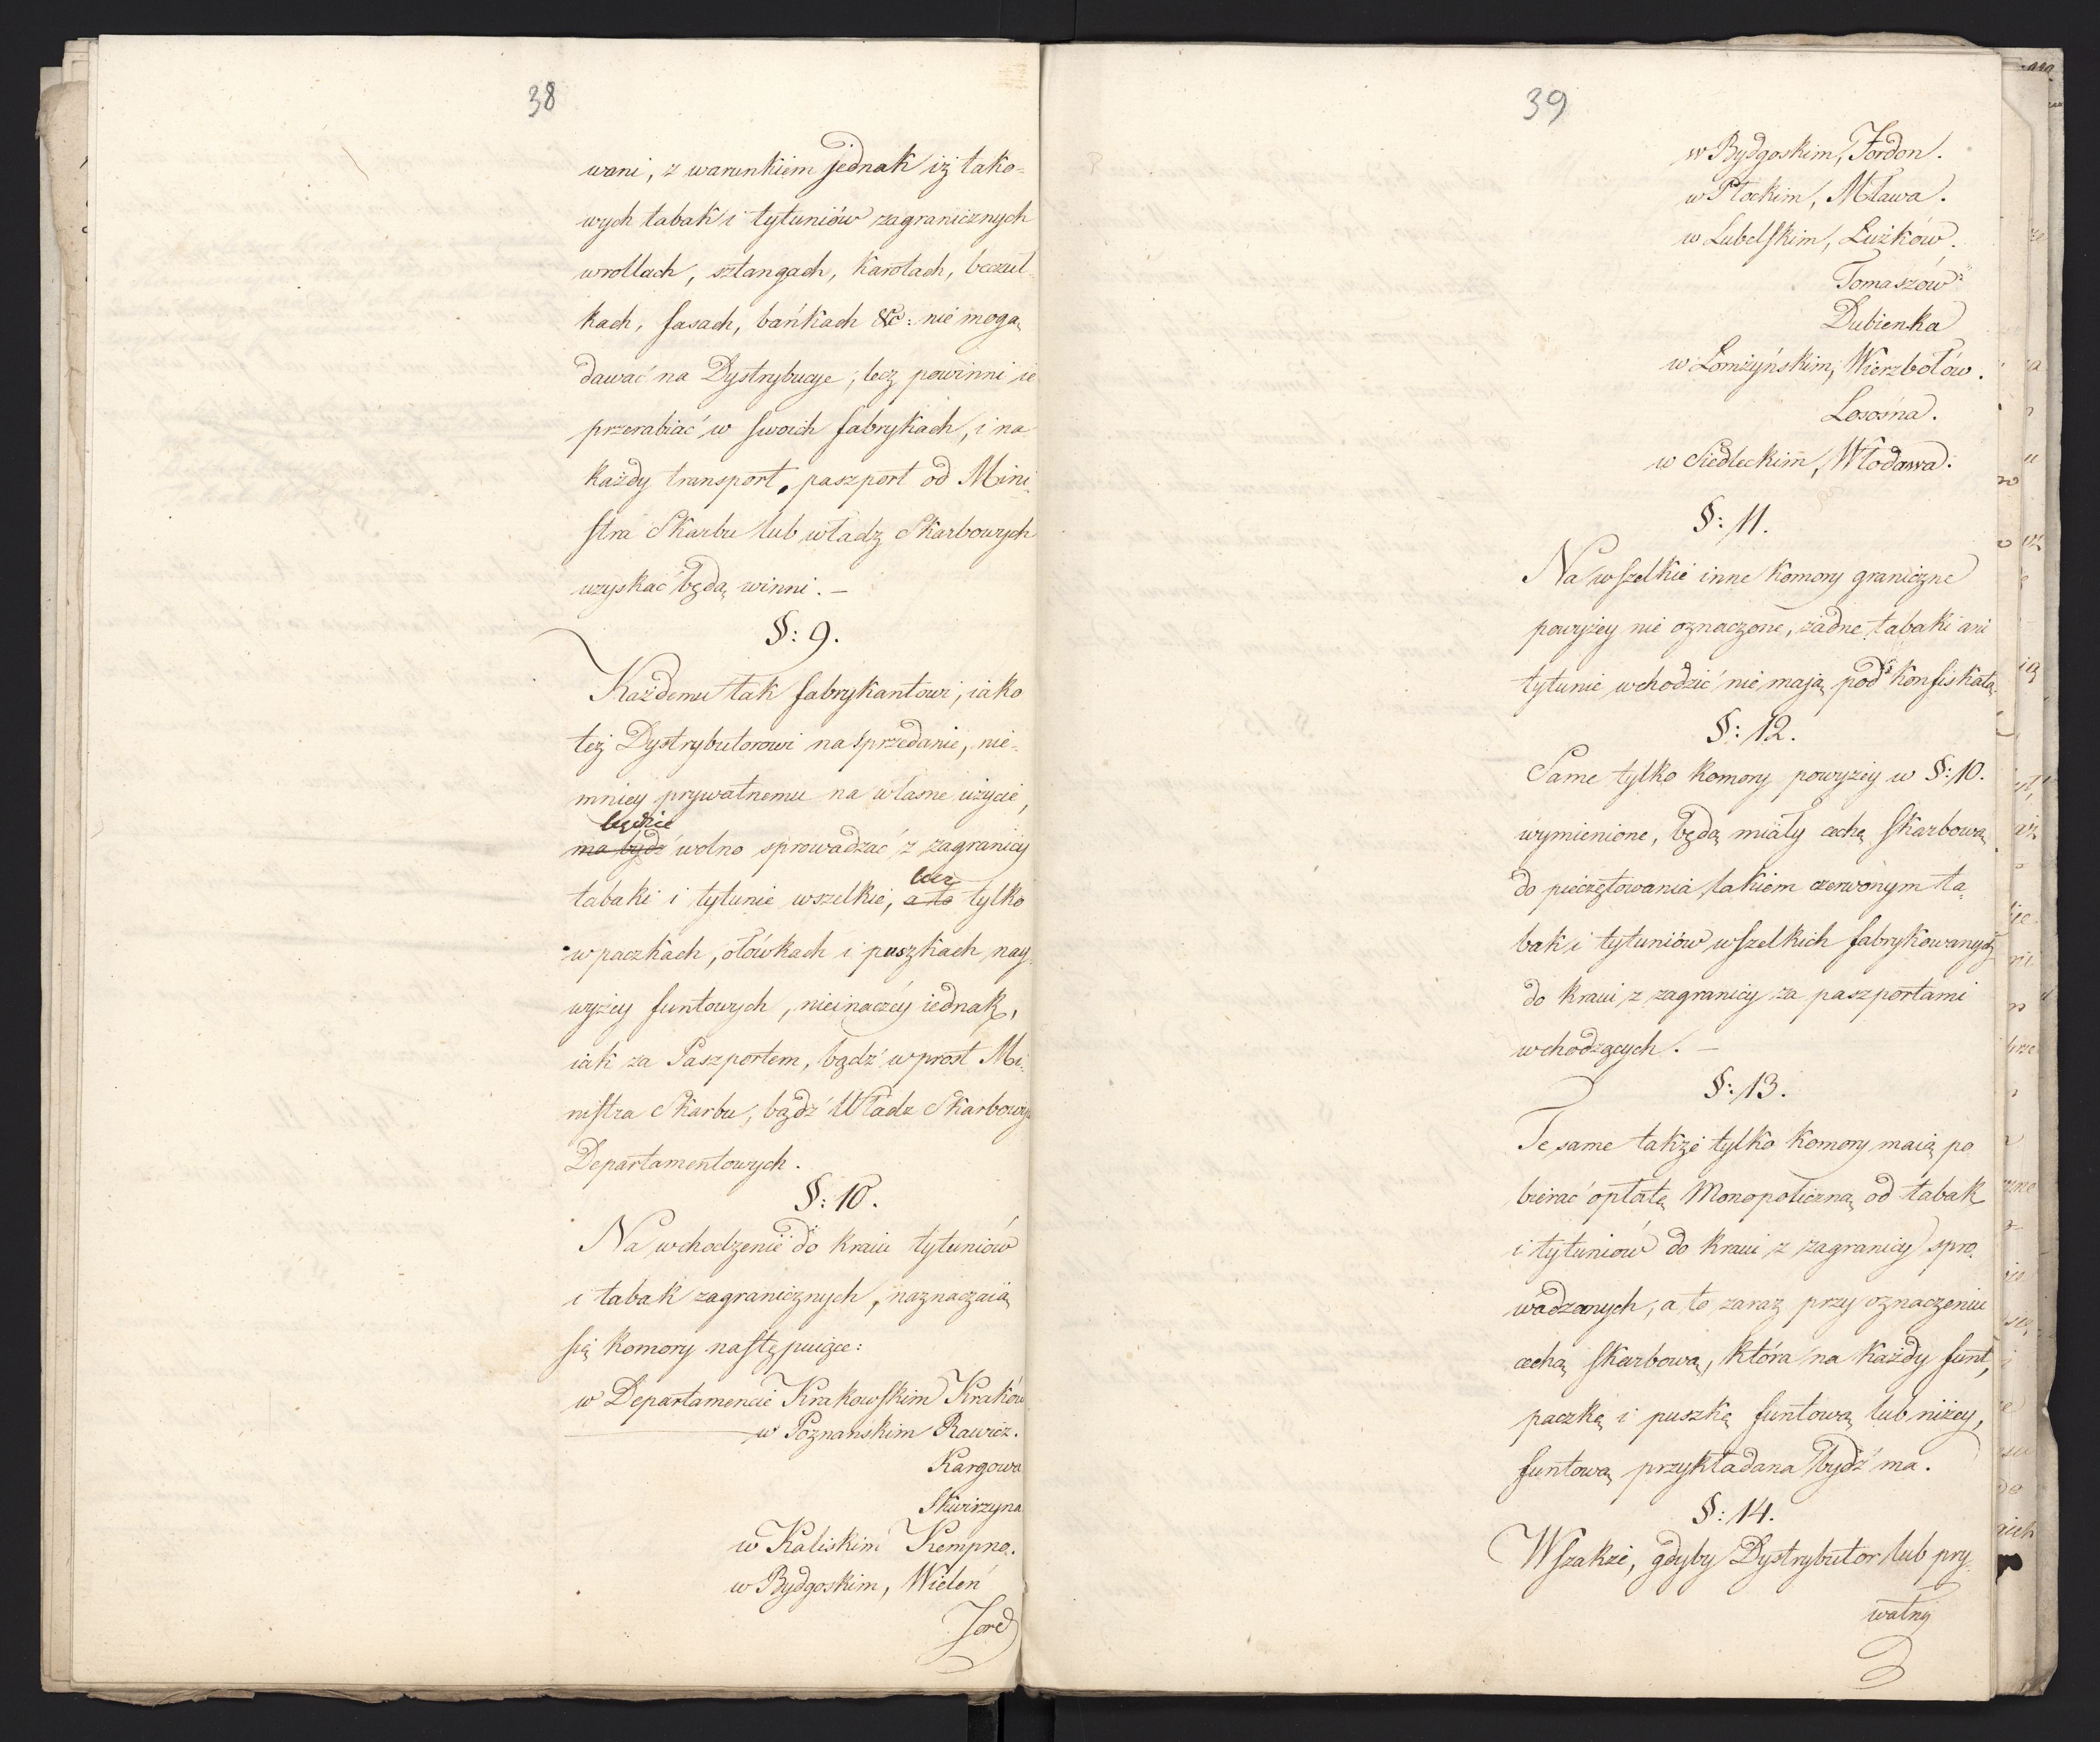 38
wani, z warunkiem jednak iż tako=
wych tabak i tytuniów zagranicznych
w rollach, sztangach, karotach, beczuł-
kach, fasach, bańkach &c: nie mogą
dawać na Dystrybucye; lecz powinni ie
przerabiać w swoich fabrykach, i na
każdy transport, paszport od Mini-
stra Skarbu lub władz Skarbowych
uzyskać będą winni. —
§: 9.
Każdemu tak fabrykantowi, iako
też Dystrybutorowi na sprzedanie, nie-
mniey prywatnemu na własne użycie,
będzie
ma bydź wolno sprowadzać z zagranicy
lecz
tabaki i tytunie wszelkie, a to tylko
w paczkach, ołówkach i puszkach nay-
wyżey funtowych, nieinaczéy iednak,
iak za Paszportem, bądź wprost Mi-
nistra Skarbu, bądź Władz Skarbowych
Departamentowych.
§: 10.
Na wchodzenie do kraiu tytuniów
i tabak zagranicznych, naznaczaią
się komory następuiące:
w Departamencie Krakowskim Kraków
w Poznańskim Rawicz.
Kargowa
Skwirzyna
w Kaliskim Kempno.
w Bydgoskim, Wieleń
Ford
39
w Bydgoskim, Fordon.
w Płockim, Mława.
w Lubelskim, Łuźków.
Tomaszów
Dubienka
w Łomżyńskim, Wierzbołów.
Łosośna.
w Siedleckim, Włodawa.
§: 11.
Na wszelkie inne komory graniczne
powyżey nie oznaczone, żadne tabaki ani
tytunie wchodzić nie mają pod konfiskatą.
§: 12.
Same tylko komory powyżéy w §: 10.
wymienione, będą miały cechę skarbową
do pieczętowania lakiem czerwonym ta-
bak i tytuniów wszelkich fabrykowanych
do kraiu z zagranicy za paszportami
wchodzących. —
§: 13.
Te same także tylko komory maią po
bierać opłatę Monopoliczną od tabak
i tytuniów do kraiu z zagranicy spro-
wadzonych, a to zaraz przy oznaczeniu
cechą skarbową, która na każdy funt,
paczkę i puszkę funtową lub niżey,
funtową przykładana bydź ma.
§: 14.
Wszakże, gdyby Dystrybutor lub pry-
watny